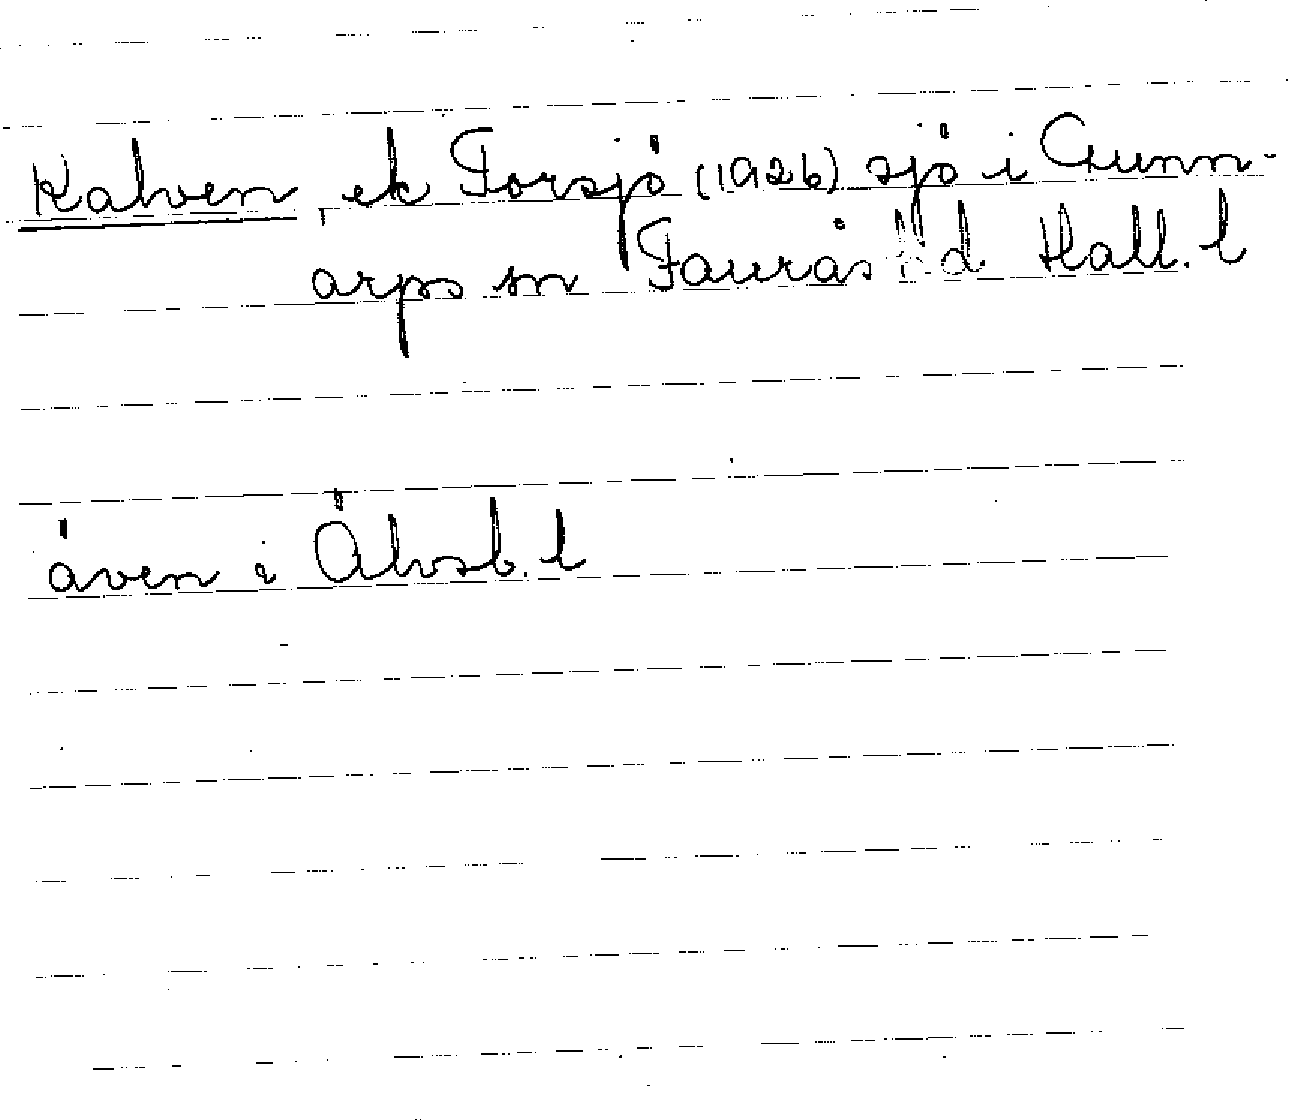 Kalven, ek Forsjö (1926) sjö i Gunn-
arps sn Faurås hd Hall. l
även i Älvsb. l